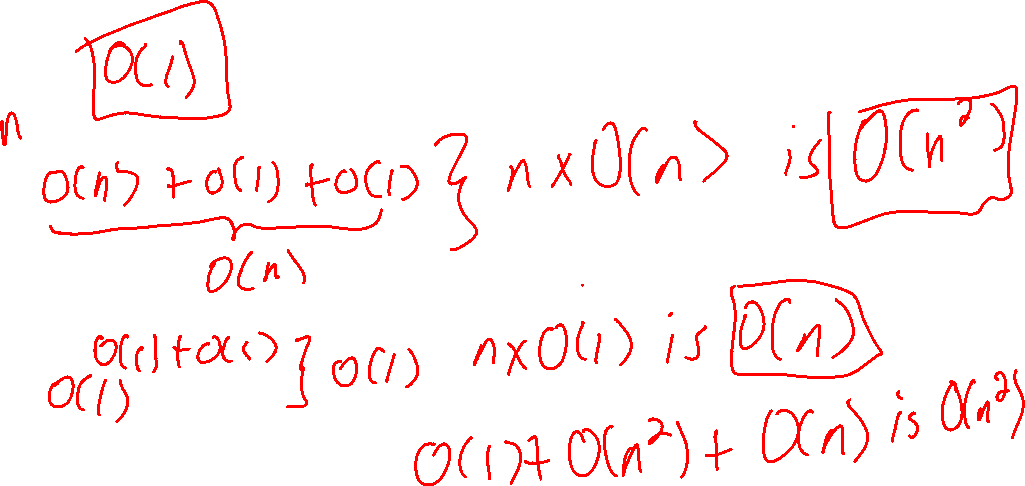 O(1)
n
O(n) + O(1) + O(1) } n x O(n) is O(n²)
O(n)
O(1) + O(1)
O(1) } O(1) n x O(1) is O(n)
O(1) + O(n²) + O(n) is O(n²)